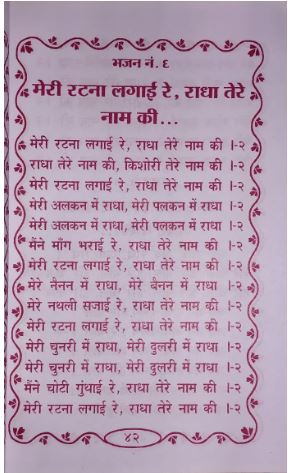 भजन नं. ६
मेरी रटना लगाई रे, राधा तेरे
नाम की...
मेरी रटना लगाई रे, राधा तेरे नाम की ।-२
राधा तेरे नाम की, किशोरी तेरे नाम की ।-२
मेरी रटना लगाई रे, राधा तेरे नाम की ।-२
मेरी अलकन में राधा, मेरी पलकन में राधा
मेरी अलकन में राधा, मेरी पलकन में राधा
मैंने माँग भराई रे, राधा तेरे नाम की ।-२
मेरी रटना लगाई रे, राधा तेरे नाम की ।-२
मेरे नैनन में राधा, मेरे बैनन में राधा ।-२
मेरे नथली सजाई रे, राधा तेरे नाम की ।-२
मेरी रटना लगाई रे, राधा तेरे नाम की ।-२
मेरी चुनरी में राधा, मेरी दुलरी में राधा ।-२
मेरी चुनरी में राधा, मेरी दुलरी में राधा ।-२
मैंने चोटी गुंथाई रे, राधा तेरे नाम की ।-२
मेरी रटना लगाई रे, राधा तेरे नाम की ।-२
४२